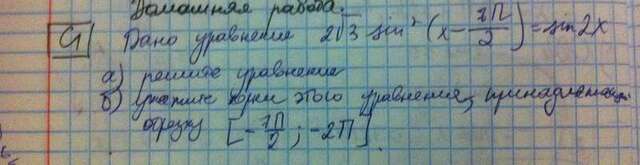 Домашняя работа.
C1 Дано уравнение 2√3 sin² (x - 7π/2) = sin 2x
а) решите уравнение
б) укажите корни этого уравнения, принадлежащие
отрезку [-7π/2 ; -2π]